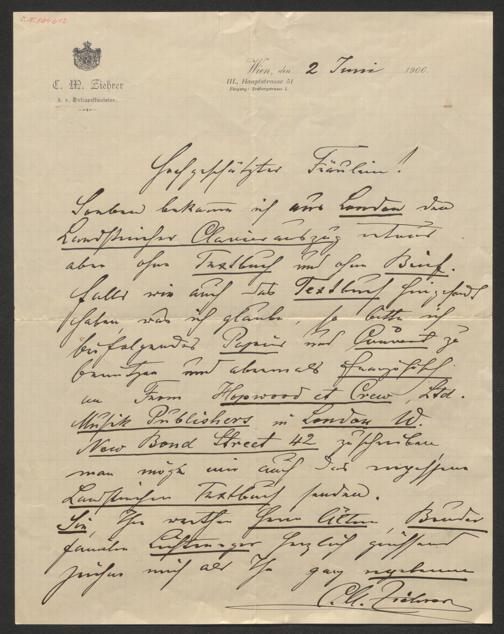 C. M. Ziehrer
k. u. k. Hofkapellmeister.
Wien, den 2 Juni 1900.
III., Hauptstrasse 51
Hochgeschätztes Fräulein!
Soeben bekomme ich aus London den
Landstreicher Clavierauszug retour
aber ohne Textbuch und ohne Brief.
Falls wir auch das Textbuch hingesandt
haben, was ich glaube, so bitte ich
beifolgendes Papier und Couvert zu
benützen und abermals französisch
an From Hopwood et Crew, Ltd.
Musik Publishers in London W.
New Bond Street 42 zu schreiben,
man möge mir auch das vergessene
Landstreicher Textbuch senden.
Sie, Ihre werthen Herrn Ältern, Bruder
Familie herzlich grüssend
zeichne mich als Ihr ganz ergebener
C. M. Ziehrer